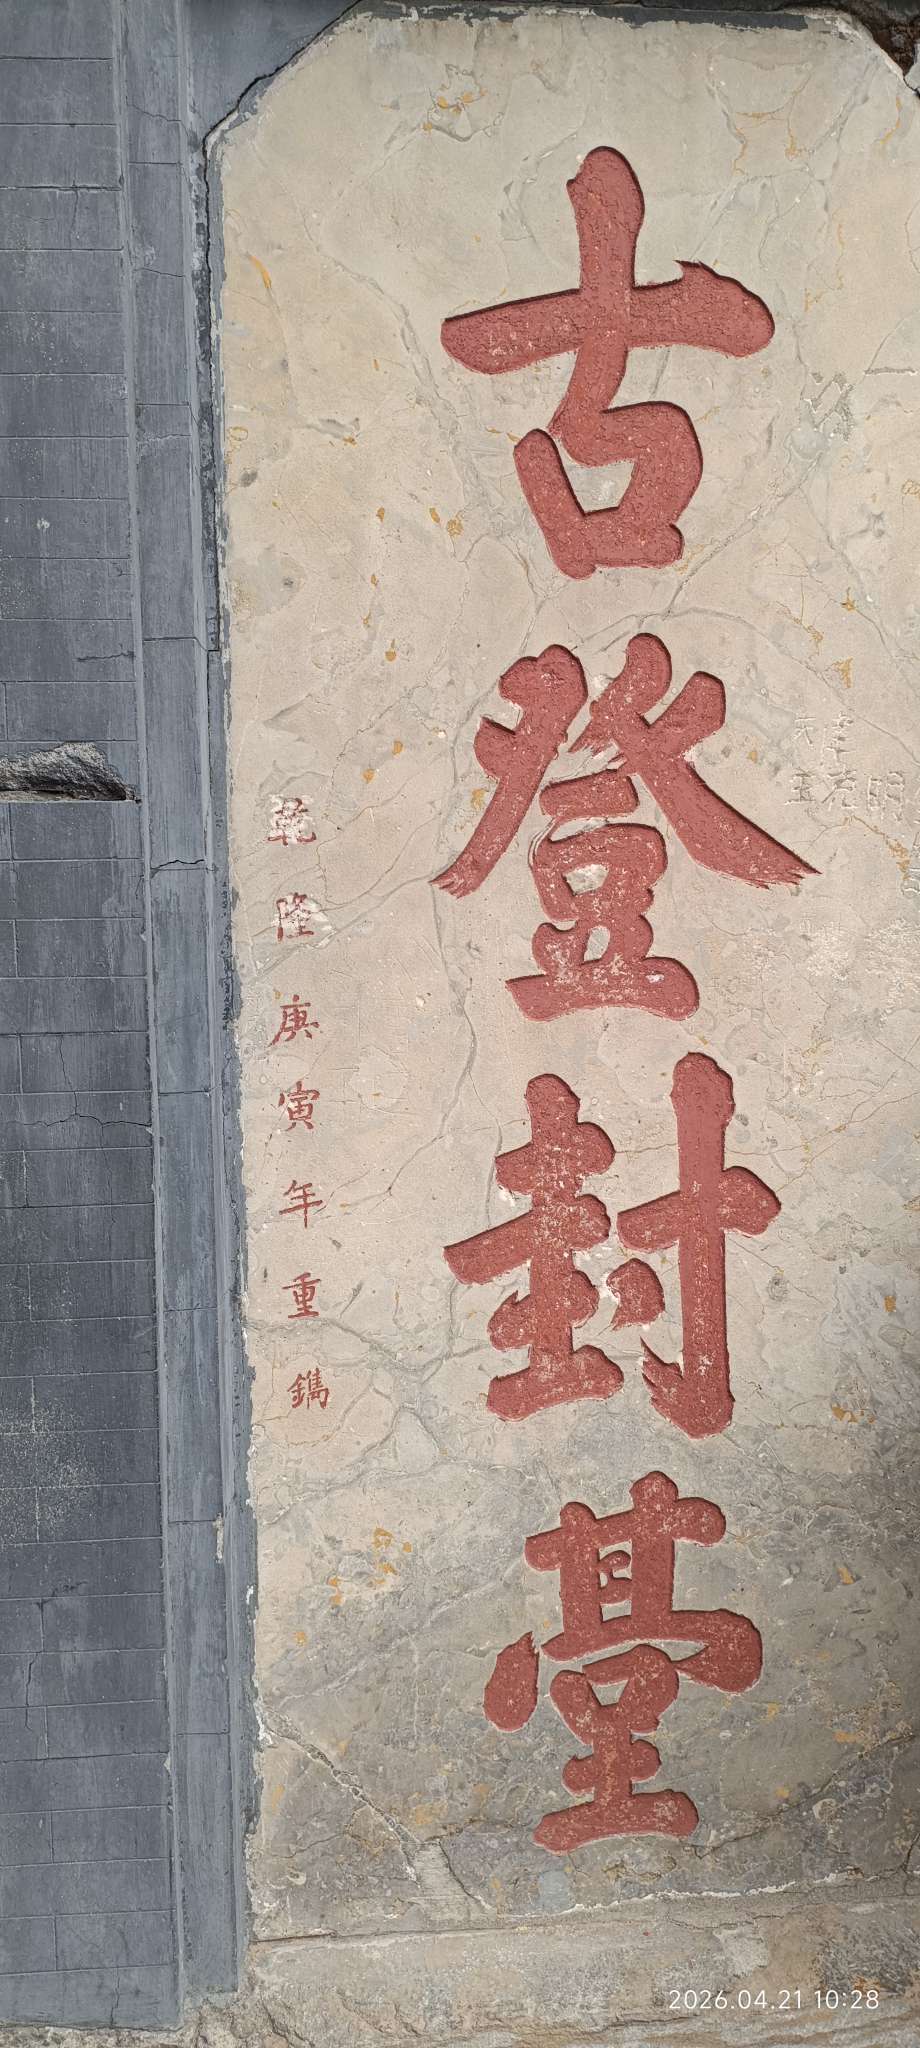 古登封臺
乾隆庚寅年重鐫
天津
王花明
2026.04.21 10:28